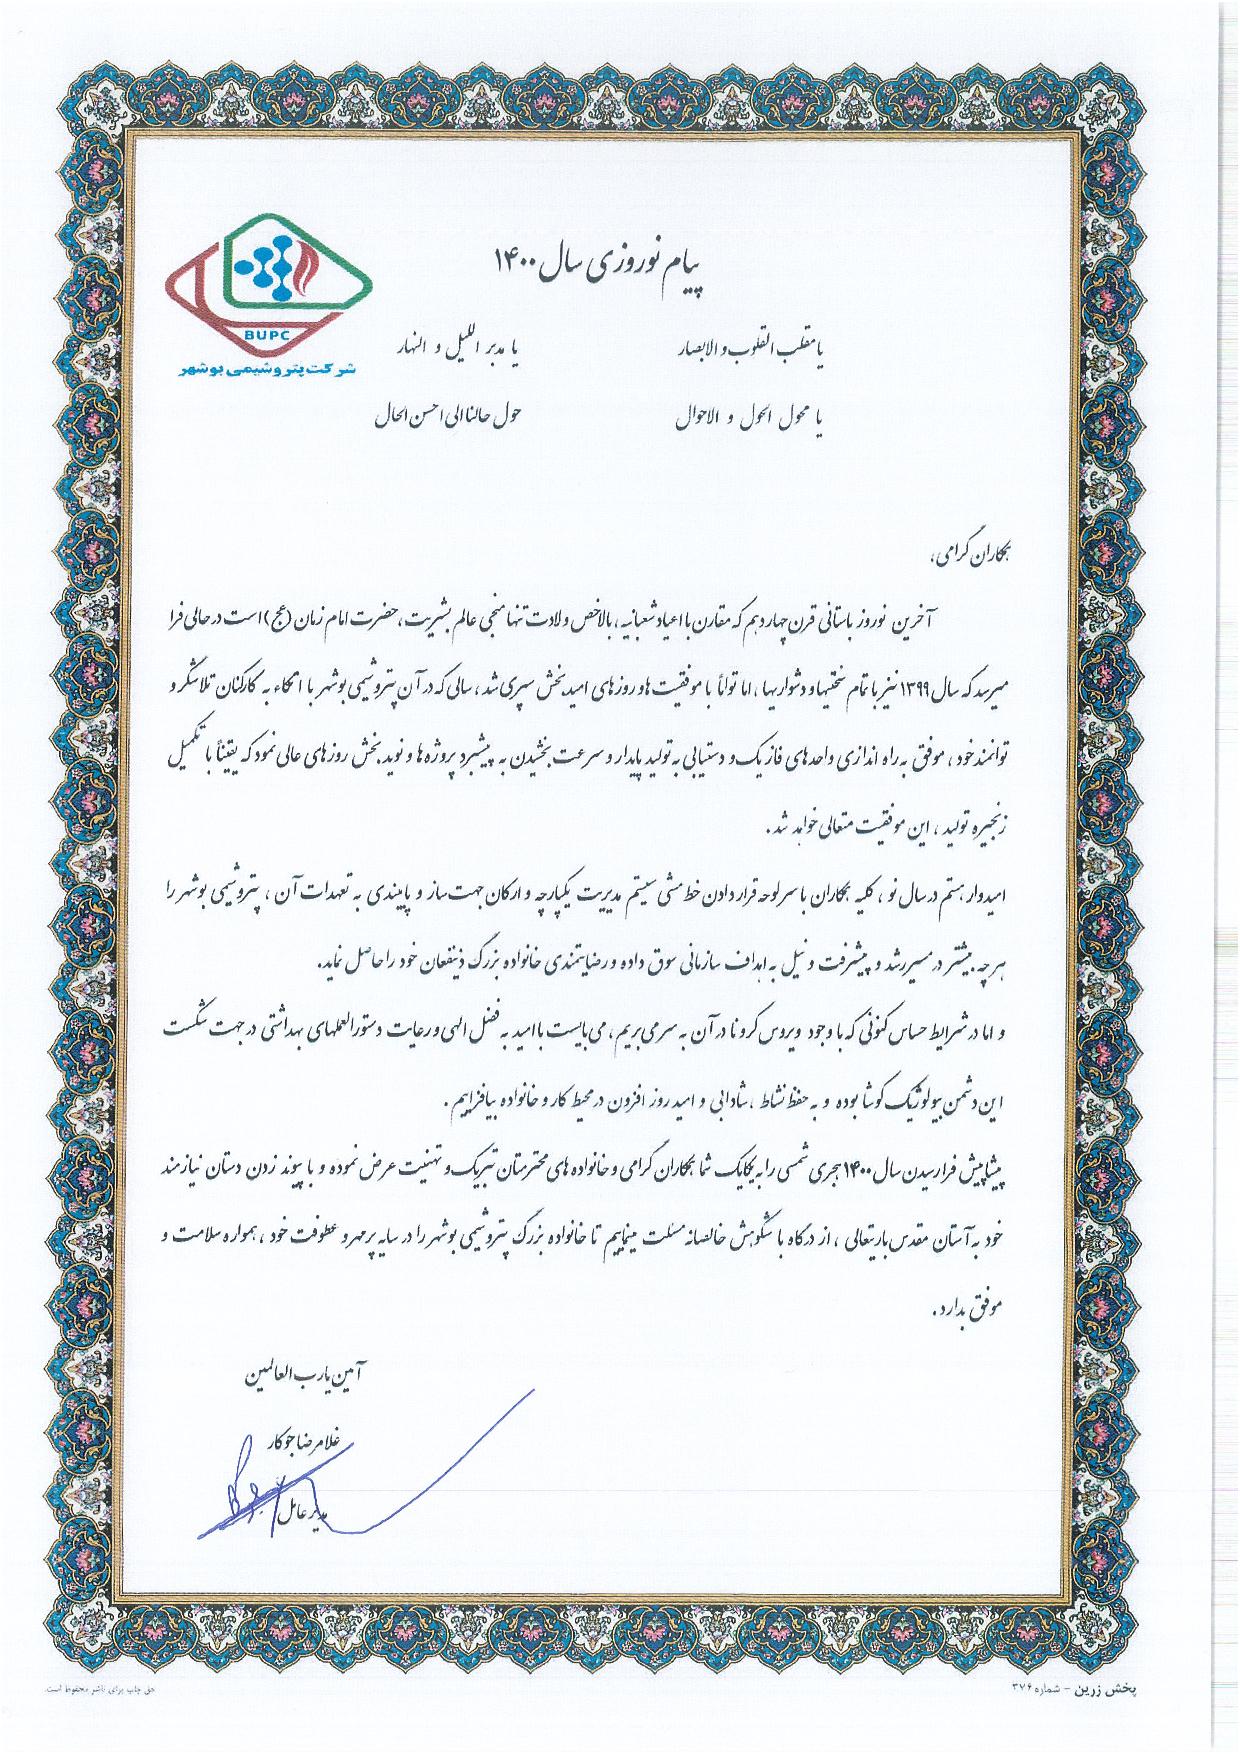 پیام نوروزی سال ۱۴۰۰
BUPC
شرکت پتروشیمی بوشهر
یا مقلب القلوب و الابصار یا مدبر اللیل و النهار
یا محول الحول و الاحوال حول حالنا الی احسن الحال
همکاران گرامی،
آخرین نوروز باستانی قرن چهاردهم که مقارن با اعیاد شعبانیه، بالاخص ولادت تنها منجی عالم بشریت، حضرت امام زمان (عج) است در حالی فرا
میرسد که سال ۱۳۹۹ نیز با تمام سختیها و دشواریها، اما توأماً با موفقیت ها و روزهای امیدبخش سپری شد، سالی که در آن پتروشیمی بوشهر با اتکاء به کارکنان تلاشگر و
توانمند خود، موفق به راه اندازی واحدهای فاز یک و دستیابی به تولید پایدار و سرعت بخشیدن به پیشبرد پروژه ها و نوید بخش روزهای عالی نمود که یقیناً با تکمیل
زنجیره تولید، این موفقیت متعالی خواهد شد.
امیدوار هستم در سال نو، کلیه همکاران با سرلوحه قرار دادن خط مشی سیستم مدیریت یکپارچه و ارکان جهت ساز و پایبندی به تعهدات آن، پتروشیمی بوشهر را
هر چه بیشتر در مسیر رشد و پیشرفت و نیل به اهداف سازمانی سوق داده و رضایتمندی خانواده بزرگ ذینفعان خود را حاصل نماید.
و اما در شرایط حساس کنونی که با وجود ویروس کرونا در آن به سر می بریم، می بایست با امید به فضل الهی و رعایت دستورالعملهای بهداشتی در جهت شکست
این دشمن بیولوژیک کوشا بوده و به حفظ نشاط، شادابی و امید روز افزون در محیط کار و خانواده بیافزاییم.
پیشاپیش فرا رسیدن سال ۱۴۰۰ هجری شمسی را به یکایک شما همکاران گرامی و خانواده های محترمتان تبریک و تهنیت عرض نموده و با پیوند زدن دستان نیازمند
خود به آستان مقدس باریتعالی، از درگاه با شکوهش خالصانه مسئلت مینماییم تا خانواده بزرگ پتروشیمی بوشهر را در سایه پر مهر و عطوفت خود، همواره سلامت و
موفق بدارد.
آمین یا رب العالمین
غلامرضا جوکار
مدیر عامل
پخش زرین - شماره ۳۷۶
حق چاپ برای ناشر محفوظ است.